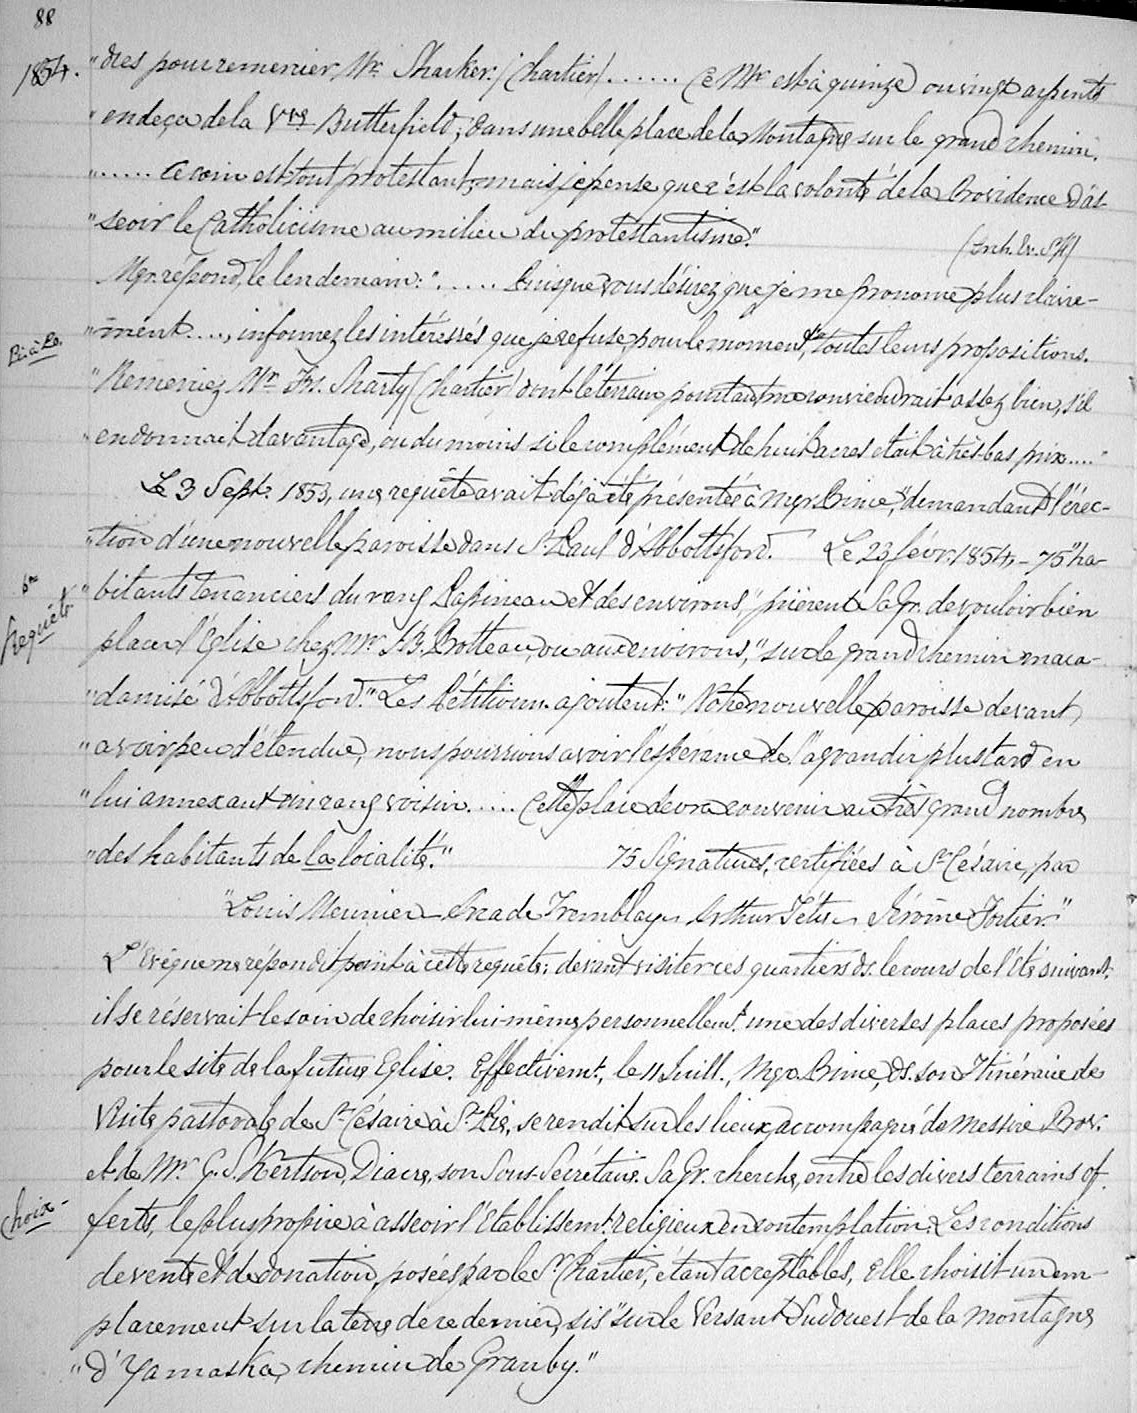 88
1854.
"dres pour remercier Mr. Sharker. (Chartier) ...... Ce Mr est à quinze ou vingt arpents
"en deça de la Vve Butterfield, dans une belle place de la Montagne sur le grand chemin.
"...... Ce coin est tout protestant; mais je pense que c'est la volonté de la Providence d'as-
"seoir le Catholicisme au milieu du protestantisme."
(Arch. Ev. St H)
Mgr. répond, le lendemain: "...... Puisque vous désirez que je me prononce plus claire-
"ment...., informez les intéressés que je refuse, pour le moment, toutes leurs propositions.
"Remerciez Mr. Frs. Sharty (Chartier) dont le terrain pourtant me conviendrait assez bien, s'il
"en donnait davantage, ou du moins si le complément de huit acres était à très-bas prix....."
Le 3 Sept. 1853, une requête avait déjà été présentée à Mgr. Prince, "demandant l'érec-
"tion d'une nouvelle paroisse dans St. Paul d'Abbottsford." Le 23 févr. 1854, – 75 "ha-
6me
Requête
"bitants tenanciers du rang Papineau et des environs," prièrent Sa Gr. de vouloir bien
placer l'Eglise chez Mr. J.B. Brotteau, ou aux environs, "sur le grand chemin maca-
"damisé d'Abbottsford." Les Pétitionn. ajoutent: "Notre nouvelle paroisse devant
"avoir peu d'étendue, nous pourrions avoir l'espérance de l'agrandir plus tard en
"lui annexant un rang voisin..... Cette place devra convenir au très grand nombre
"des habitants de la localité."
75 Signatures, certifiées à St. Césaire, par
"Louis Meunier – Arcade Tremblay – Arthur Tétu – Jérôme Fortier."
L'Evêque ne répondit point à cette requête; devant visiter ces quartiers ds. le cours de l'été suivant,
il se réservait le soin de choisir lui-même personnellemt. une des diverses places proposées
pour le site de la future Eglise. Effectivemt., le 11 Juill., Mgr. Prince, ds. son Itinéraire de
Visite pastorale de St. Césaire à St. Pie, se rendit sur les lieux accompagné de Messire Prov.
et de Mr. G. S. Kertson, Diacre, son Sous-Secrétaire. Sa Gr. cherche, entre les divers terrains of-
choix –
ferts, le plus propice à asseoir l'Etablissemt. religieux en contemplation. Les conditions
de vente et de donation, posées par le Sr. Chartier, étant acceptables, Elle choisit un em-
placement sur la terre de ce dernier, sis "sur le Versant Sud ouest de la montagne
"d'Yamaska, chemin de Granby."